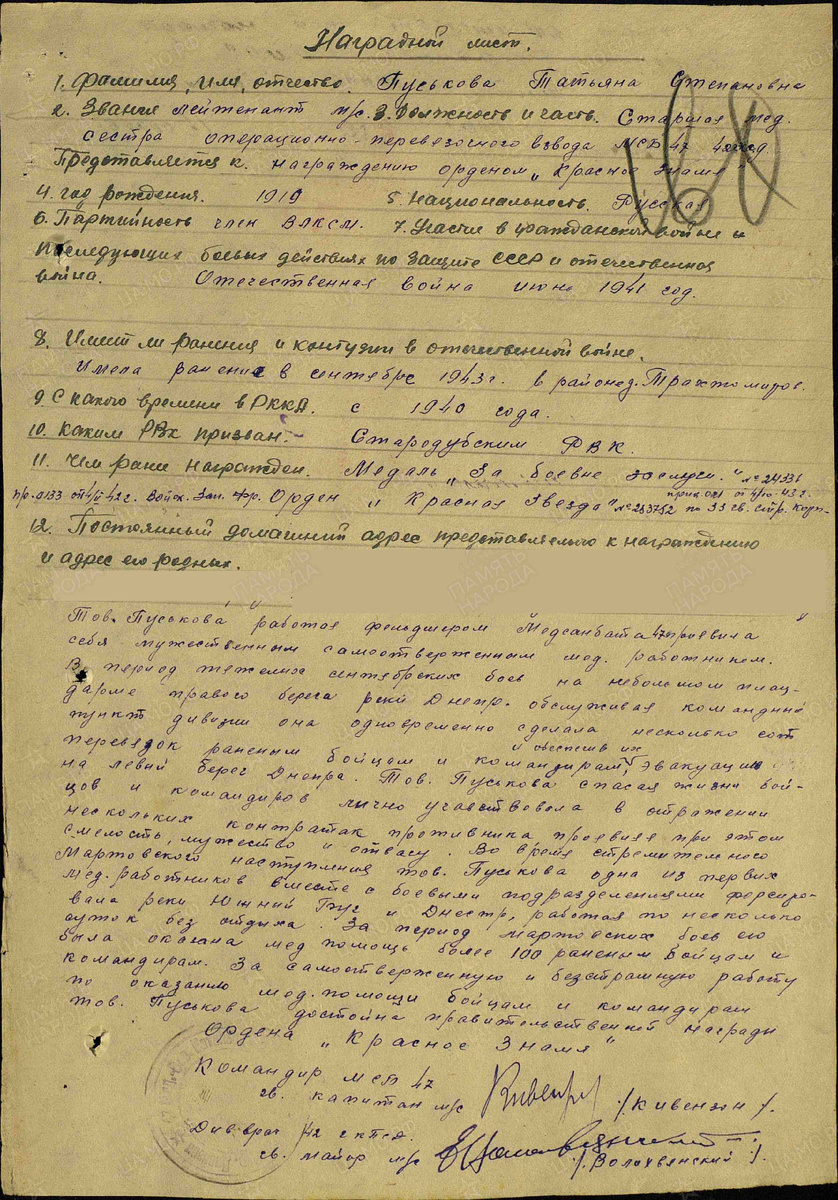 Наградной лист.
1. Фамилия, имя, отчество. Пуськова Татьяна Степановна
2. Звание лейтенант м/с. 3. Должность и часть. Старшая мед.
сестра операционно-перевязочного взвода МСБ 47
Представляется к. награждению орденом „Красное Знамя"
4. год рождения. 1919 5. Национальность. Русская
6. Партийность член ВЛКСМ. 7. Участие в гражданской войне и
последующих боевых действиях по защите СССР и отечественная
война. Отечественная война июнь 1941 год.
8. Имеет ли ранения и контузии в отечественной войне.
Имела ранение в сентябре 1943 г. в районе д. Трахтомиров.
9. С какого времени в РККА. с 1940 года.
10. Каким РВК призван. Стародубским РВК.
11. Чем ранее награжден. Медаль „За боевые заслуги."
Орден „Красная Звезда" № 253752 по 33 гв. стр. корп.
12. Постоянный домашний адрес представляемого к награждению
и адрес его родных.
Тов. Пуськова работая фельдшером Медсанбата 47 проевила
себя мужественным самоотверженным мед. работником.
В период тяжелых сентябрьских боев на небольшом плац-
дарме правого берега реки Днепр. обслуживая командный
пункт дивизии она одновременно сделала несколько сот
перевязок раненым бойцам и командирам, и обеспечив их эвакуацию
на левый берег Днепра. Тов. Пуськова спасая жизни бой-
цов и командиров лично участвовала в отражении
нескольких контратак противника проевляя при этом
смелость, мужество и отвагу. Во время стремительного
Мартовского наступления тов. Пуськова одна из первых
мед. работников вместе с боевыми подразделениями форсиро-
вала реки Южный Буг и Днестр, работая по несколько
суток без отдыха. За период мартовских боев ею
была оказана мед помощь более 100 раненым бойцам и
командирам. За самоотверженную и безстрашную работу
по оказанию мед. помощи бойцам и командирам
тов. Пуськова достойна правительственной награды
Ордена „Красное Знамя"
Командир МСБ 47
гв. капитан м/с /Кивензон/.
Див врач 42 гв КПСД.
гв. майор м/с /Волохвянский/.